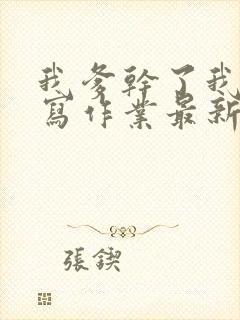 我爹幹了我
寫作業最新
張鍥